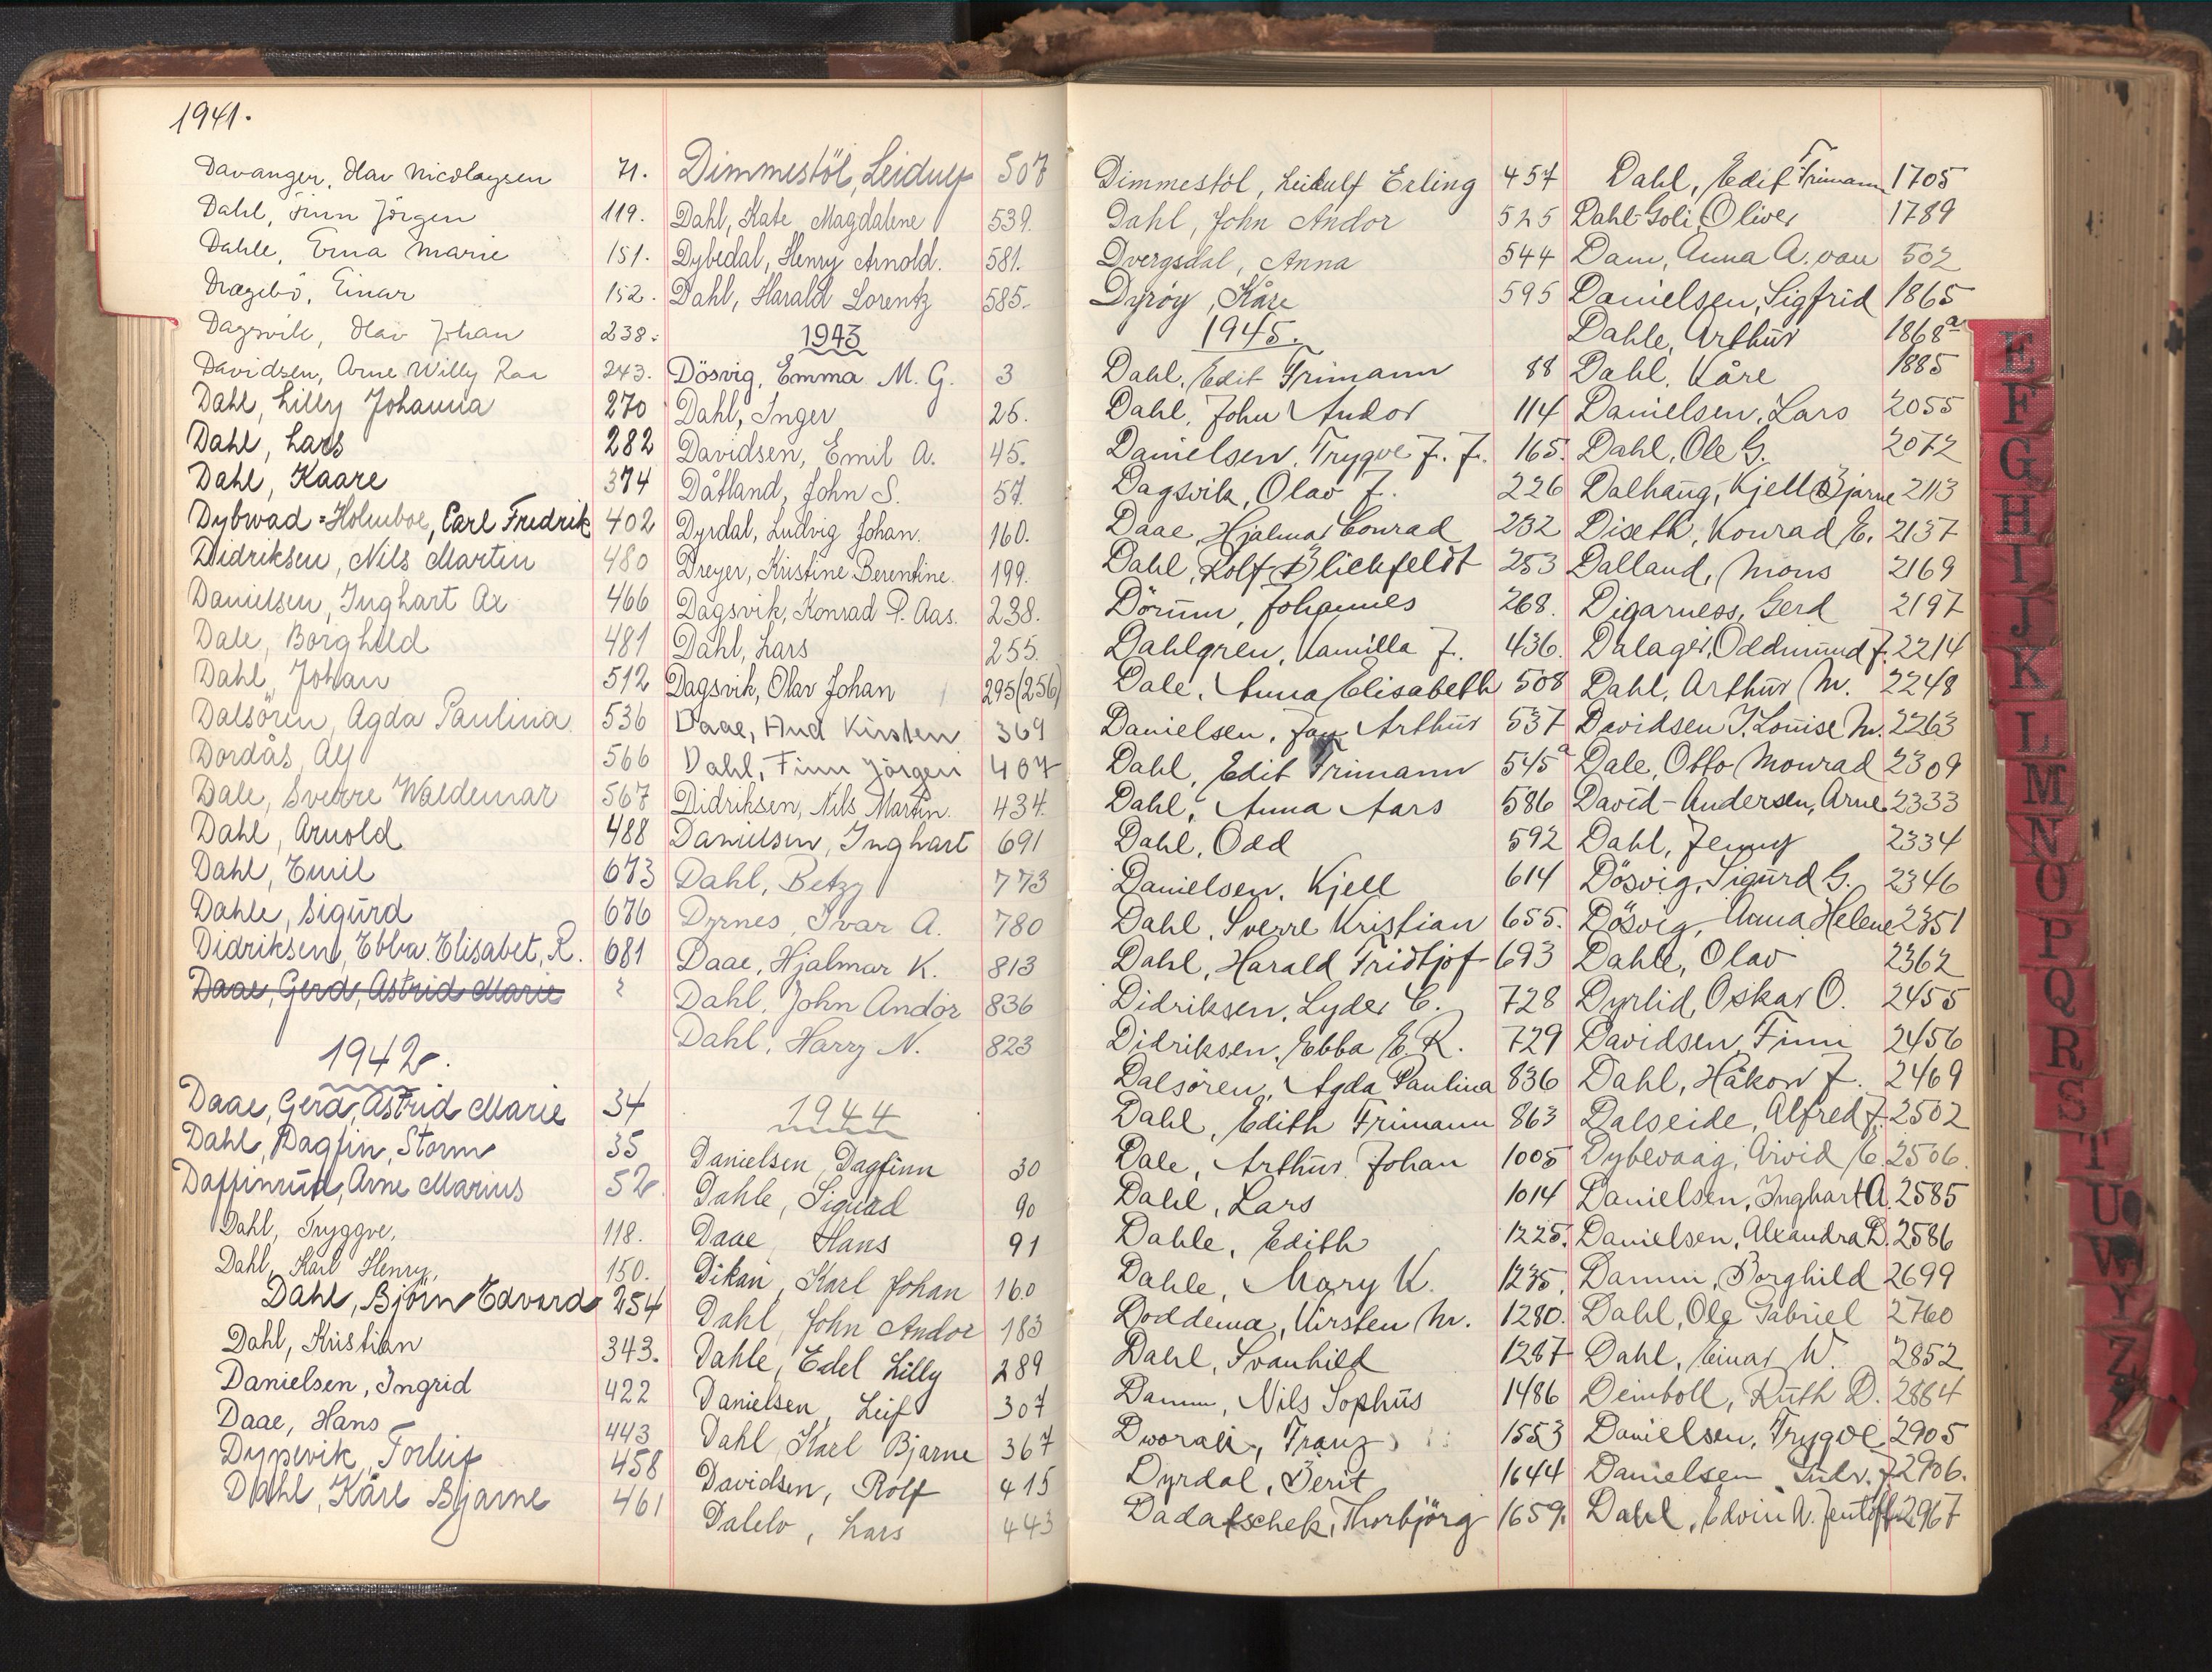 1941.
Davanger, Olav Nicolaysen 71.
Dahl, Finn Jörgen 119.
Dahle, Erna Marie 151.
Drægebö, Einar 152.
Dagsvik, Olav Johan 238.
Davidsen, Arne Willy 243.
Dahl, Lilly Johanna 270
Dahl, Lars 282
Dahl, Kaare 374
Dybwad=Holmboe, Carl Fredrik 402
Didriksen, Nils Martin 480
Danielsen, Inghart Ax 466
Dale, Borghild 481
Dahl, Johan 512
Dalsören, Agda Paulina 536
Dordås, Alf 566
Dale, Sverre Waldemar 567
Dahl, Arnold 488
Dahl, Emil 673
Dahle, Sigurd 676
Didriksen, Ebba. Elisabet, R. 681
Daae, Gerd, Astrid Marie ?
1942.
Daae, Gerd, Astrid Marie 34
Dahl, Dagfin, Storm 35
Daffinrud, Arne Marius 52
Dahl, Tryggve, 118.
Dahl, Karl Henry, 150.
Dahl, Björn Edvard 254
Dahl, Kristian 343.
Danielsen, Ingrid 422
Daae, Hans 443
Dypevik, Torleif 458
Dahl, Kåre Bjarne 461
Dimmestöl, Leidulf 507
Dahl, Kate Magdalene 539.
Dybedal, Henry Arnold. 581.
Dahl, Harald Lorentz 585.
1943
Dösvig, Emma M. G. 3
Dahl, Inger 26.
Davidsen, Emil A. 45.
Dåtland, John S. 57.
Dyrdal, Ludvig Johan. 160.
Dreyer, Kristine Berentine. 199.
Dagsvik, Konrad P. Aas. 238.
Dahl, Lars 255.
Dagsvik, Olav Johan 295(256)
Daae, Aud Kirsten 369
Dahl, Finn Jörgen 407
Didriksen, Nils Martin. 434.
Danielsen, Inghart 691
Dahl, Betzy 773
Dyrnes, Ivar A. 780
Daae, Hjalmar K. 813
Dahl, John Andor 836
Dahl, Harry N. 823
1944
Danielsen, Dagfinn 30
Dahle, Sigurd 90
Daae, Hans 91
Dikan, Karl Johan 160
Dahl, John Andor 183
Dahle, Edel Lilly 289
Danielsen, Leif 307
Dahl, Karl Bjarne 367
Davidsen, Rolf 415
Dalelv, Lars 443
Dimmestöl, Leidulf Erling 457
Dahl, John Andor 525
Dvergsdal, Anna 544
Dyröy, Kåre 595
1945.
Dahl, Edit Frimann 88
Dahl, John Andor 114
Danielsen, Trygve J. J. 165.
Dagsvik, Olav J. 226
Daae, Hjalmar Conrad 232
Dahl, Rolf Blichfeldt 253
Dörum, Johannes 268.
Dahlgren, Kamilla J. 436.
Dale, Anna Elisabeth 508
Danielsen, Jan Arthur 537
Dahl, Edit Frimann 545a
Dahl, Anna Aars 586
Dahl, Odd 592
Danielsen, Kjell 614
Dahl, Sverre Kristian 655.
Dahl, Harald Fridtjof 693
Didriksen, Lyder C. 728
Didriksen, Ebba E. R. 729
Dalsören, Agda Paulina 836
Dahl, Edith Frimann 863
Dale, Arthur Johan 1005
Dahl, Lars 1014
Dahle, Edith 1225.
Dahle, Mary K. 1235.
Doddema, Kirsten M. 1280.
Dahl, Svanhild 1287
Damm, Nils Sophus 1486
Dworak, Franz 1553
Dyrdal, Berit 1644
Dadatschek, Thorbjörg 1659.
Dahl, Edit Frimann 1705
Dahl-Goli, Oliver 1789
Dam, Anna A. van 502
Danielsen, Sigfrid 1865
Dahle, Arthur 1868a
Dahl, Kåre 1885
Danielsen, Lars 2055
Dahl, Ole G. 2072
Dalhaug, Kjell Bjarne 2113
Diseth, Konrad E. 2137
Dalland, Mons 2169
Digarness, Gerd 2197
Dalager, Oddmund J. 2214
Dahl, Arthur M. 2248
Davidsen J. Louise M. 2263
Dale, Otto Monrad 2309
David-Andersen, Arne 2333
Dahl, Jenny 2334
Dösvig, Sigurd G. 2346
Dösvig, Anna Helene 2351
Dahle, Olav 2362
Dyrlid, Oskar O. 2455
Davidsen, Finn 2456
Dahl, Håkon J. 2469
Dalseide, Alfred J. 2502
Dybevaag, Arvid E. 2506.
Danielsen, Inghart A. 2585
Danielsen, Alexandra D. 2586
Damm, Borghild 2699
Dahl, Ole Gabriel 2760
Dahl, Einar W. 2852
Deinboll, Ruth D. 2884
Danielsen, Trygve 2905
Danielsen 2906.
Dahl, Edvin W. Jentoft 2967
E
F
G
H
I
J
K
L
M
N
O
P
Q
R
S
T
U
W
Y
Z